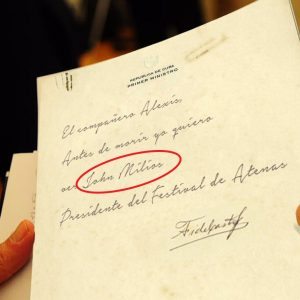 REPUBLICA DE CUBA
PRIMER MINISTRO
El compañero Alexis,
Antes de morir yo quiero
ver John Milios
Presidente del Festival de Atenas